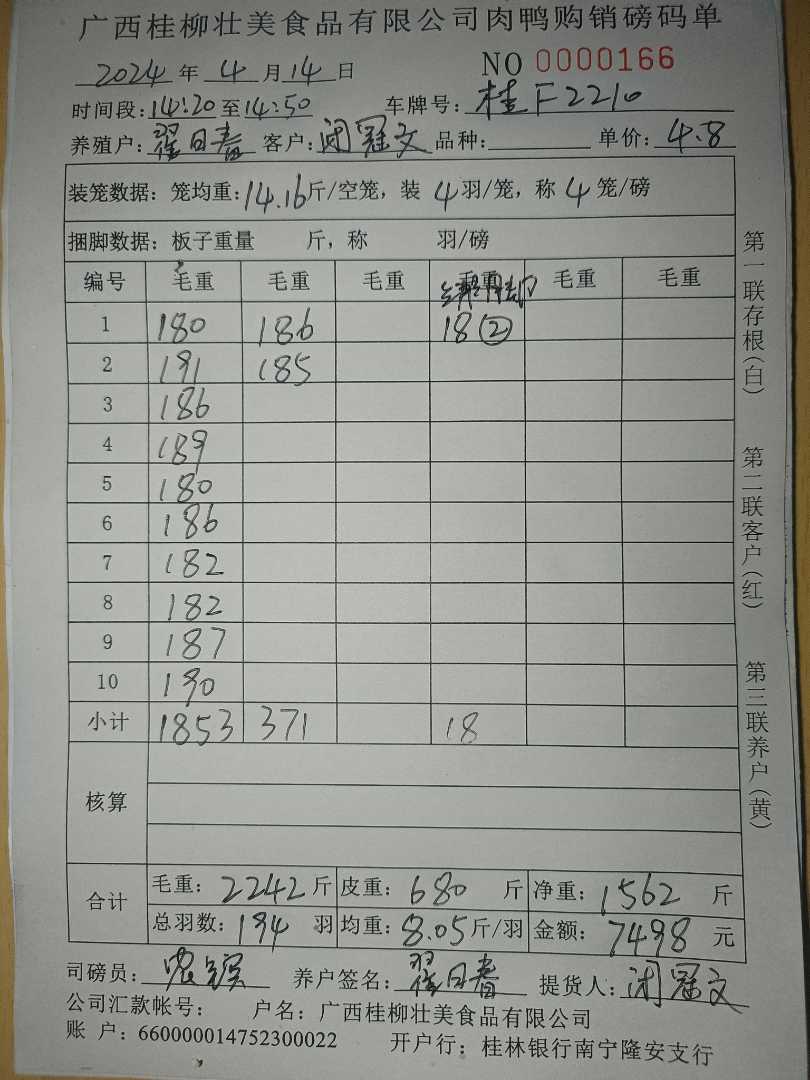 广西桂柳壮美食品有限公司肉鸭购销磅码单
2024 年 4 月 14 日 NO 0000166
时间段:14:20至14:50 车牌号:桂F2210
养殖户:翟日春 客户:闭冠文 品种: 单价:4.8
装笼数据:笼均重:14.16斤/空笼,装 4 羽/笼,称 4 笼/磅
捆脚数据:板子重量 斤,称 羽/磅
编号 毛重 毛重 毛重 毛重 毛重 毛重
1 180 186 18②
2 191 185
3 186
4 189
5 180
6 186
7 182
8 182
9 187
10 190
小计 1853 371 18
核算
合计 毛重:2242斤 皮重:680 斤 净重:1562 斤
总羽数:194 羽 均重:8.05斤/羽 金额:7498 元
司磅员: 养户签名:翟日春 提货人:闭冠文
公司汇款帐号: 户名:广西桂柳壮美食品有限公司
账 户:660000014752300022 开户行:桂林银行南宁隆安支行
第一联存根(白)
第二联客户(红)
第三联养户(黄)